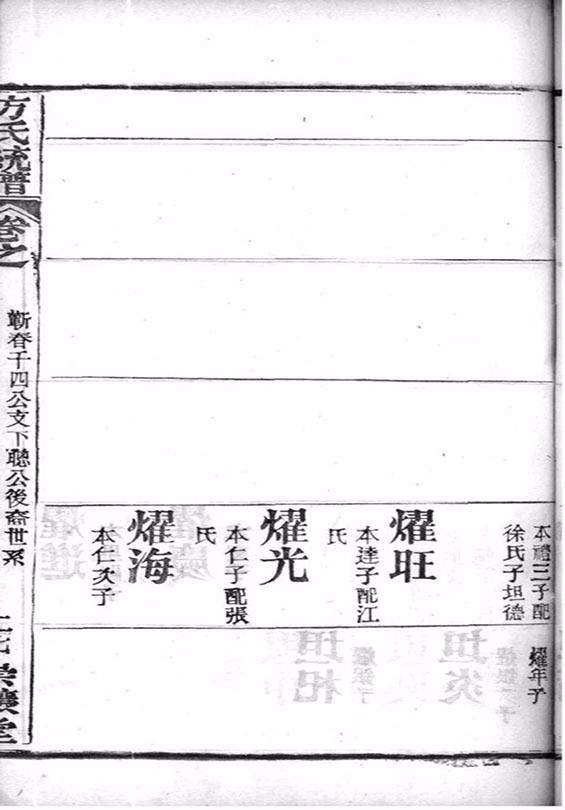 本禮三子配
徐氏子坦德
耀年子
耀旺
本達子配江
氏
耀光
本仁子配張
氏
耀海
本仁次子
方氏統譜
卷之
蘄春千四公支下聰公後裔世系